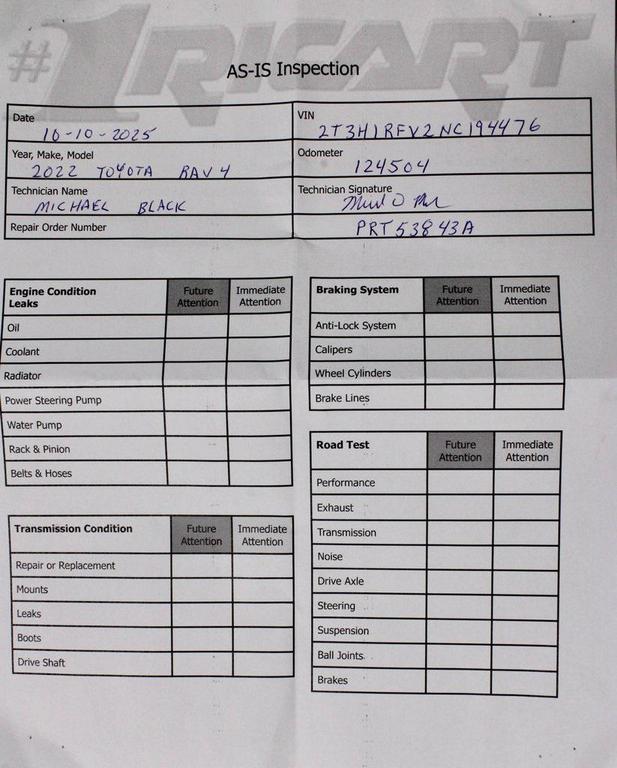 #1RICART
AS-IS Inspection
Date
10-10-2025
VIN
2T3H1RFV2NC194476
Year, Make, Model
2022 TOYOTA RAV4
Odometer
124504
Technician Name
MICHAEL BLACK
Technician Signature
Repair Order Number
PRT53843A
Engine Condition Leaks Future Attention Immediate Attention
Oil
Coolant
Radiator
Power Steering Pump
Water Pump
Rack & Pinion
Belts & Hoses
Transmission Condition Future Attention Immediate Attention
Repair or Replacement
Mounts
Leaks
Boots
Drive Shaft
Braking System Future Attention Immediate Attention
Anti-Lock System
Calipers
Wheel Cylinders
Brake Lines
Road Test Future Attention Immediate Attention
Performance
Exhaust
Transmission
Noise
Drive Axle
Steering
Suspension
Ball Joints
Brakes